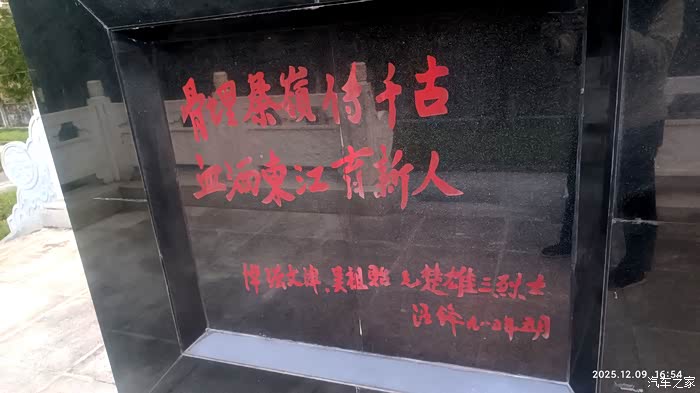 骨埋桑嶺传千古
血洒東江育新人
悼张文津、吴祖贻、毛楚雄三烈士
汪锋 八二年五月
2025.12.09 16:54
汽车之家